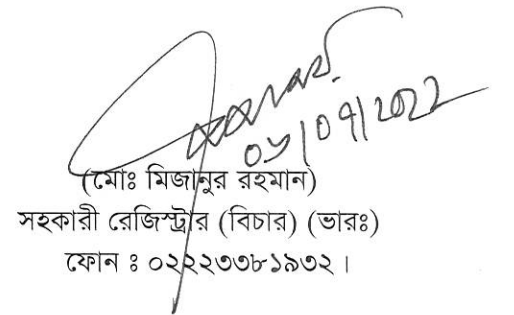 ০৬/০৭/২০২২
(মোঃ মিজানুর রহমান)
সহকারী রেজিস্ট্রার (বিচার) (ভারঃ)
ফোন ঃ ০২২২৩৩৮১৯৩২।